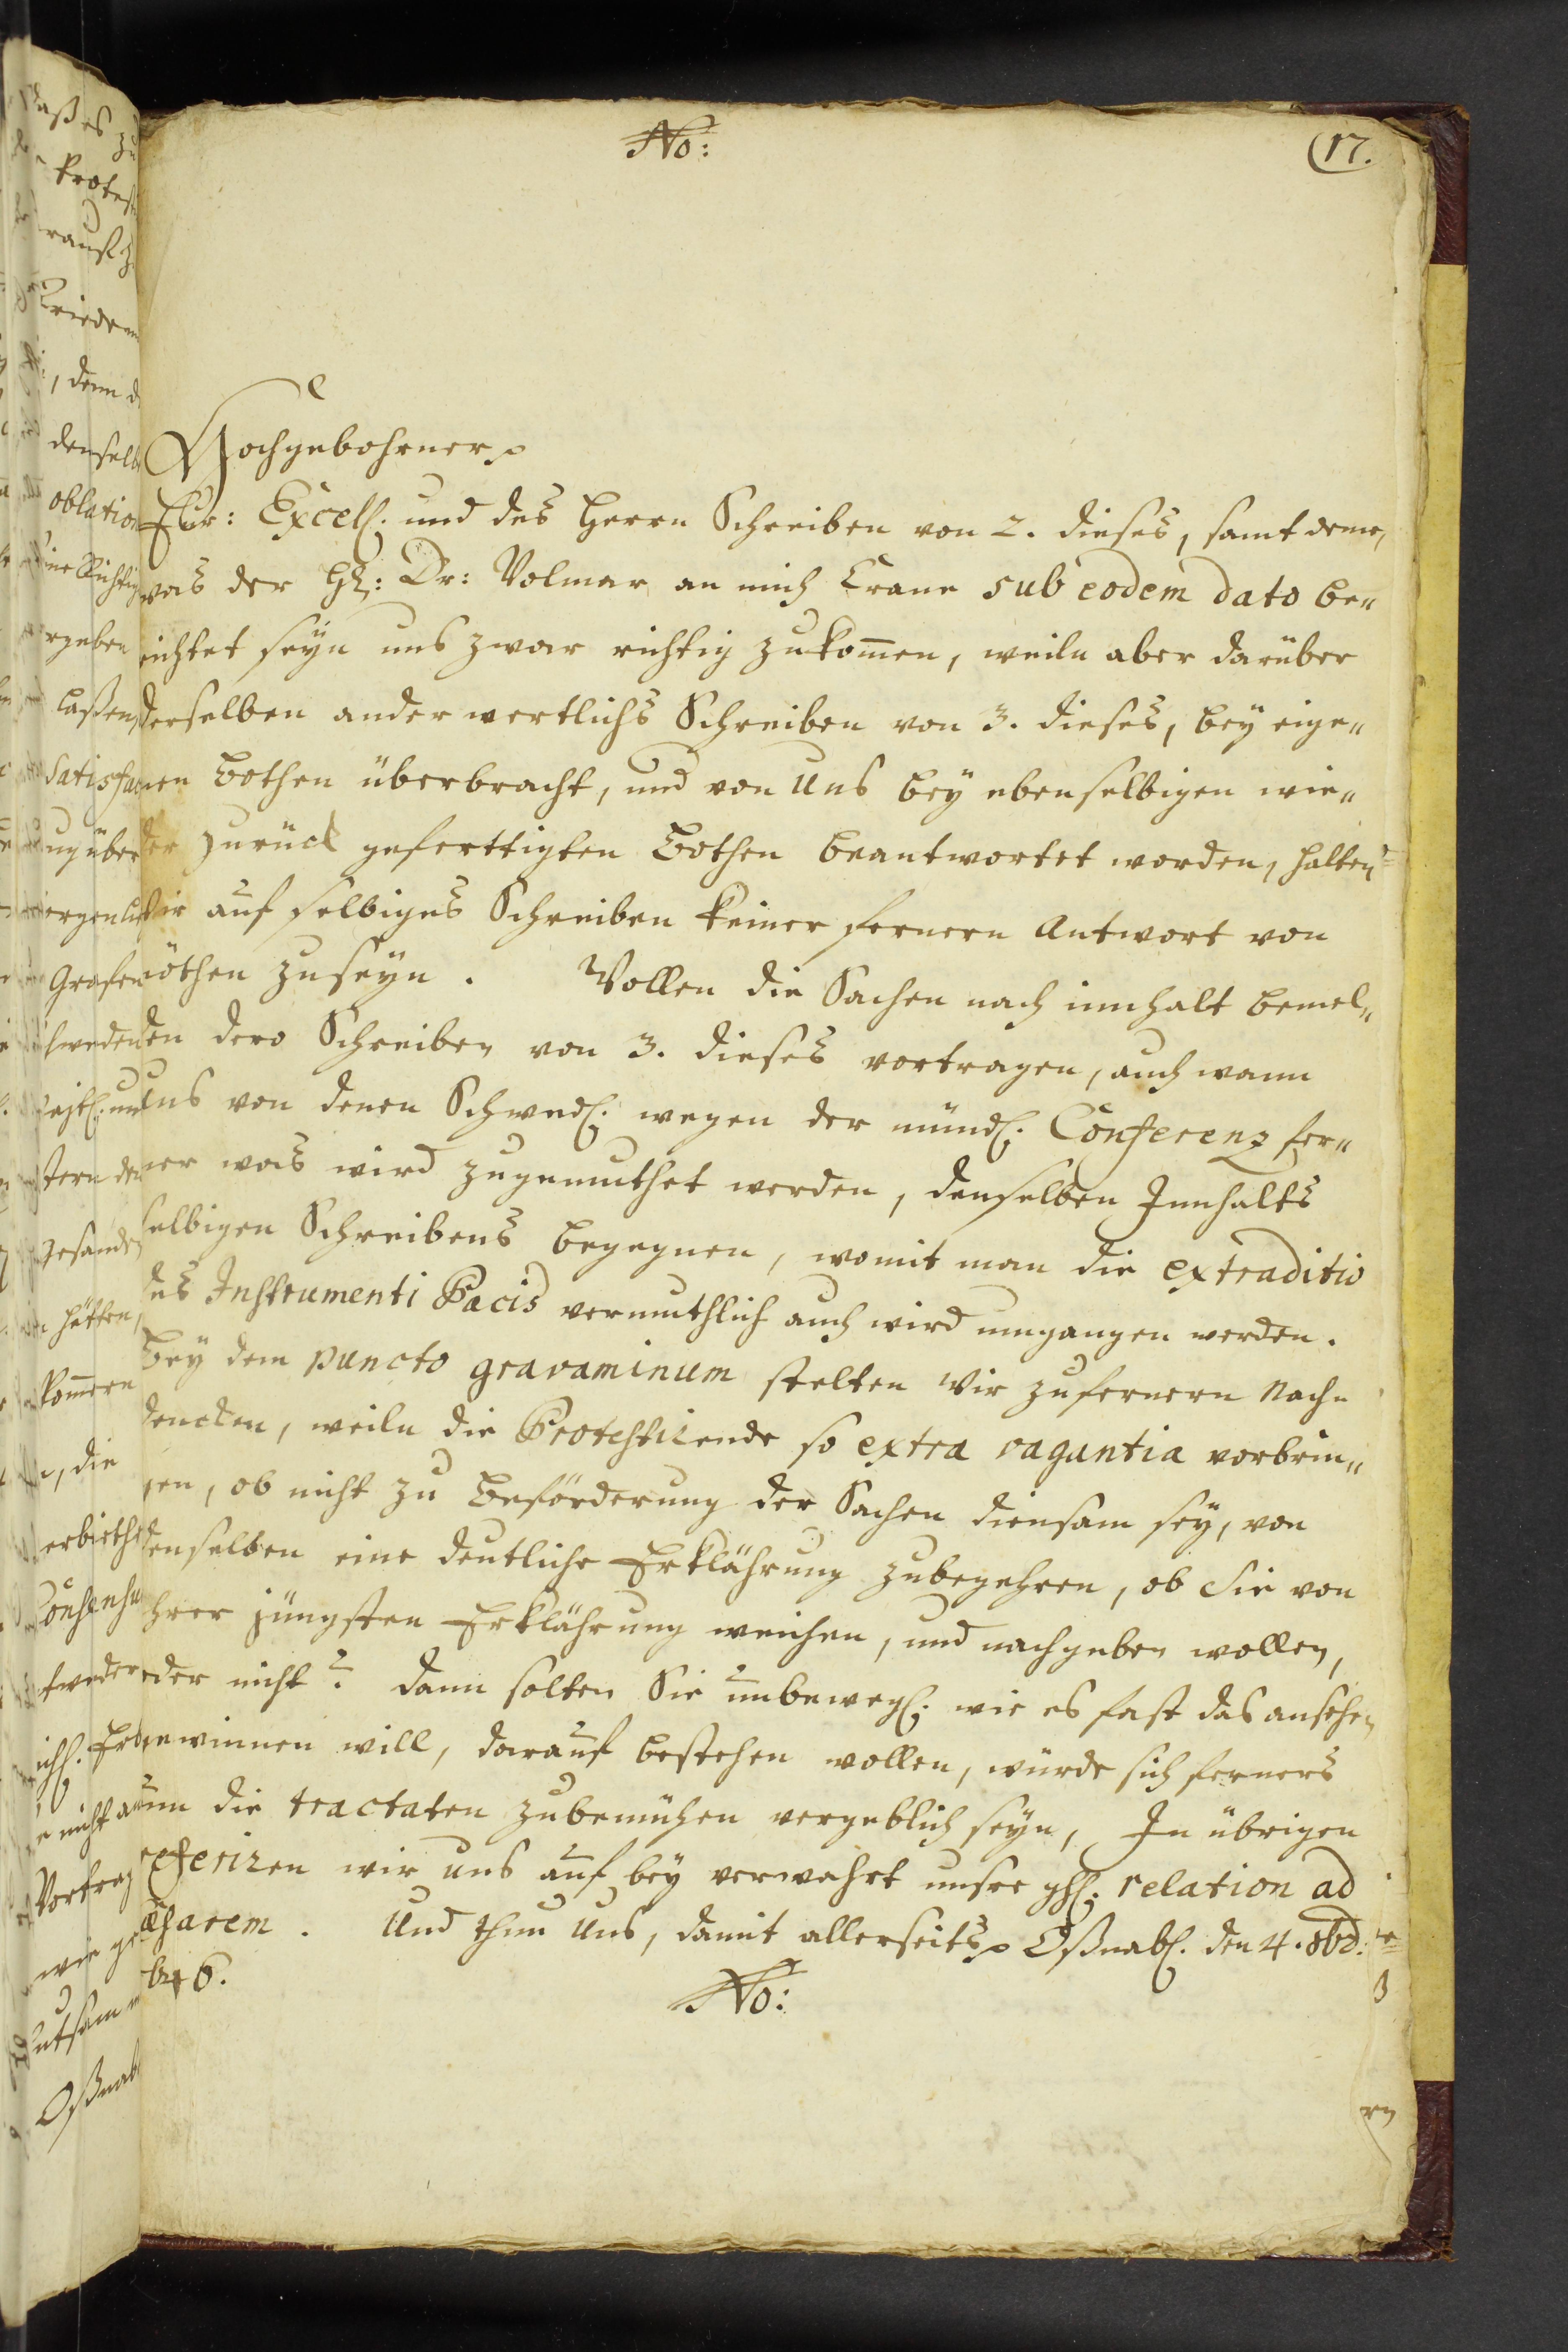 No:
17.
Hochgebohrner
Eur: Excell. und des Herrn Schreiben von 2. dieses, samt deme,
was der H: Dr: Volmar an mich Crane sub eodem dato be„
richtet seyn uns zwar richtig zukommen, weiln aber darüber
derselben anderwertlichs Schreiben von 3. dieses, bey eige„
nen bothen überbracht, und von Uns bey ebenselbigen wie„
der zurück geferttigten bothen beantwortet worden, halten
wir auf selbiges Schreiben keiner fernern Antwort von
nöthen zuseyn. Wollen die Sachen nach innhalt bemel„
den dero Schreiben von 3. dieses vortragen, auch wann
uns von denen Schwed. wegen der münd. Conferenz fer„
ner was wird zugemuthet werden, denselben Innhalts
selbigen Schreibens begegnen, womit man die extraditio
des Instrumenti Pacis vermuthlich auch wird umgangen werden.
bey dem puncto gravaminum stelten wir zufernern Nach„
dencken, weiln die Protestirende so extra vagantia vorbrin„
gen, ob nicht zu beförderung der Sachen diensam sey, von
denselben eine deutliche Erklährung zubegehren, ob Sie von
ihrer jüngsten Erklährung weichen, und nachgeben wollen,
oder nicht? dann solten Sie unbewegl. wie es fast das ansehen
gewinnen will, darauf bestehen wollen, würde sich ferners
um die tractaten zubemühen vergeblich seyn, In übrigen
referiren wir uns auf bey verwahrt unsere relation ad
Cæsarem. Und thun Uns, damit allerseits Oßnab. den 4. 8bd:
1646.
No: